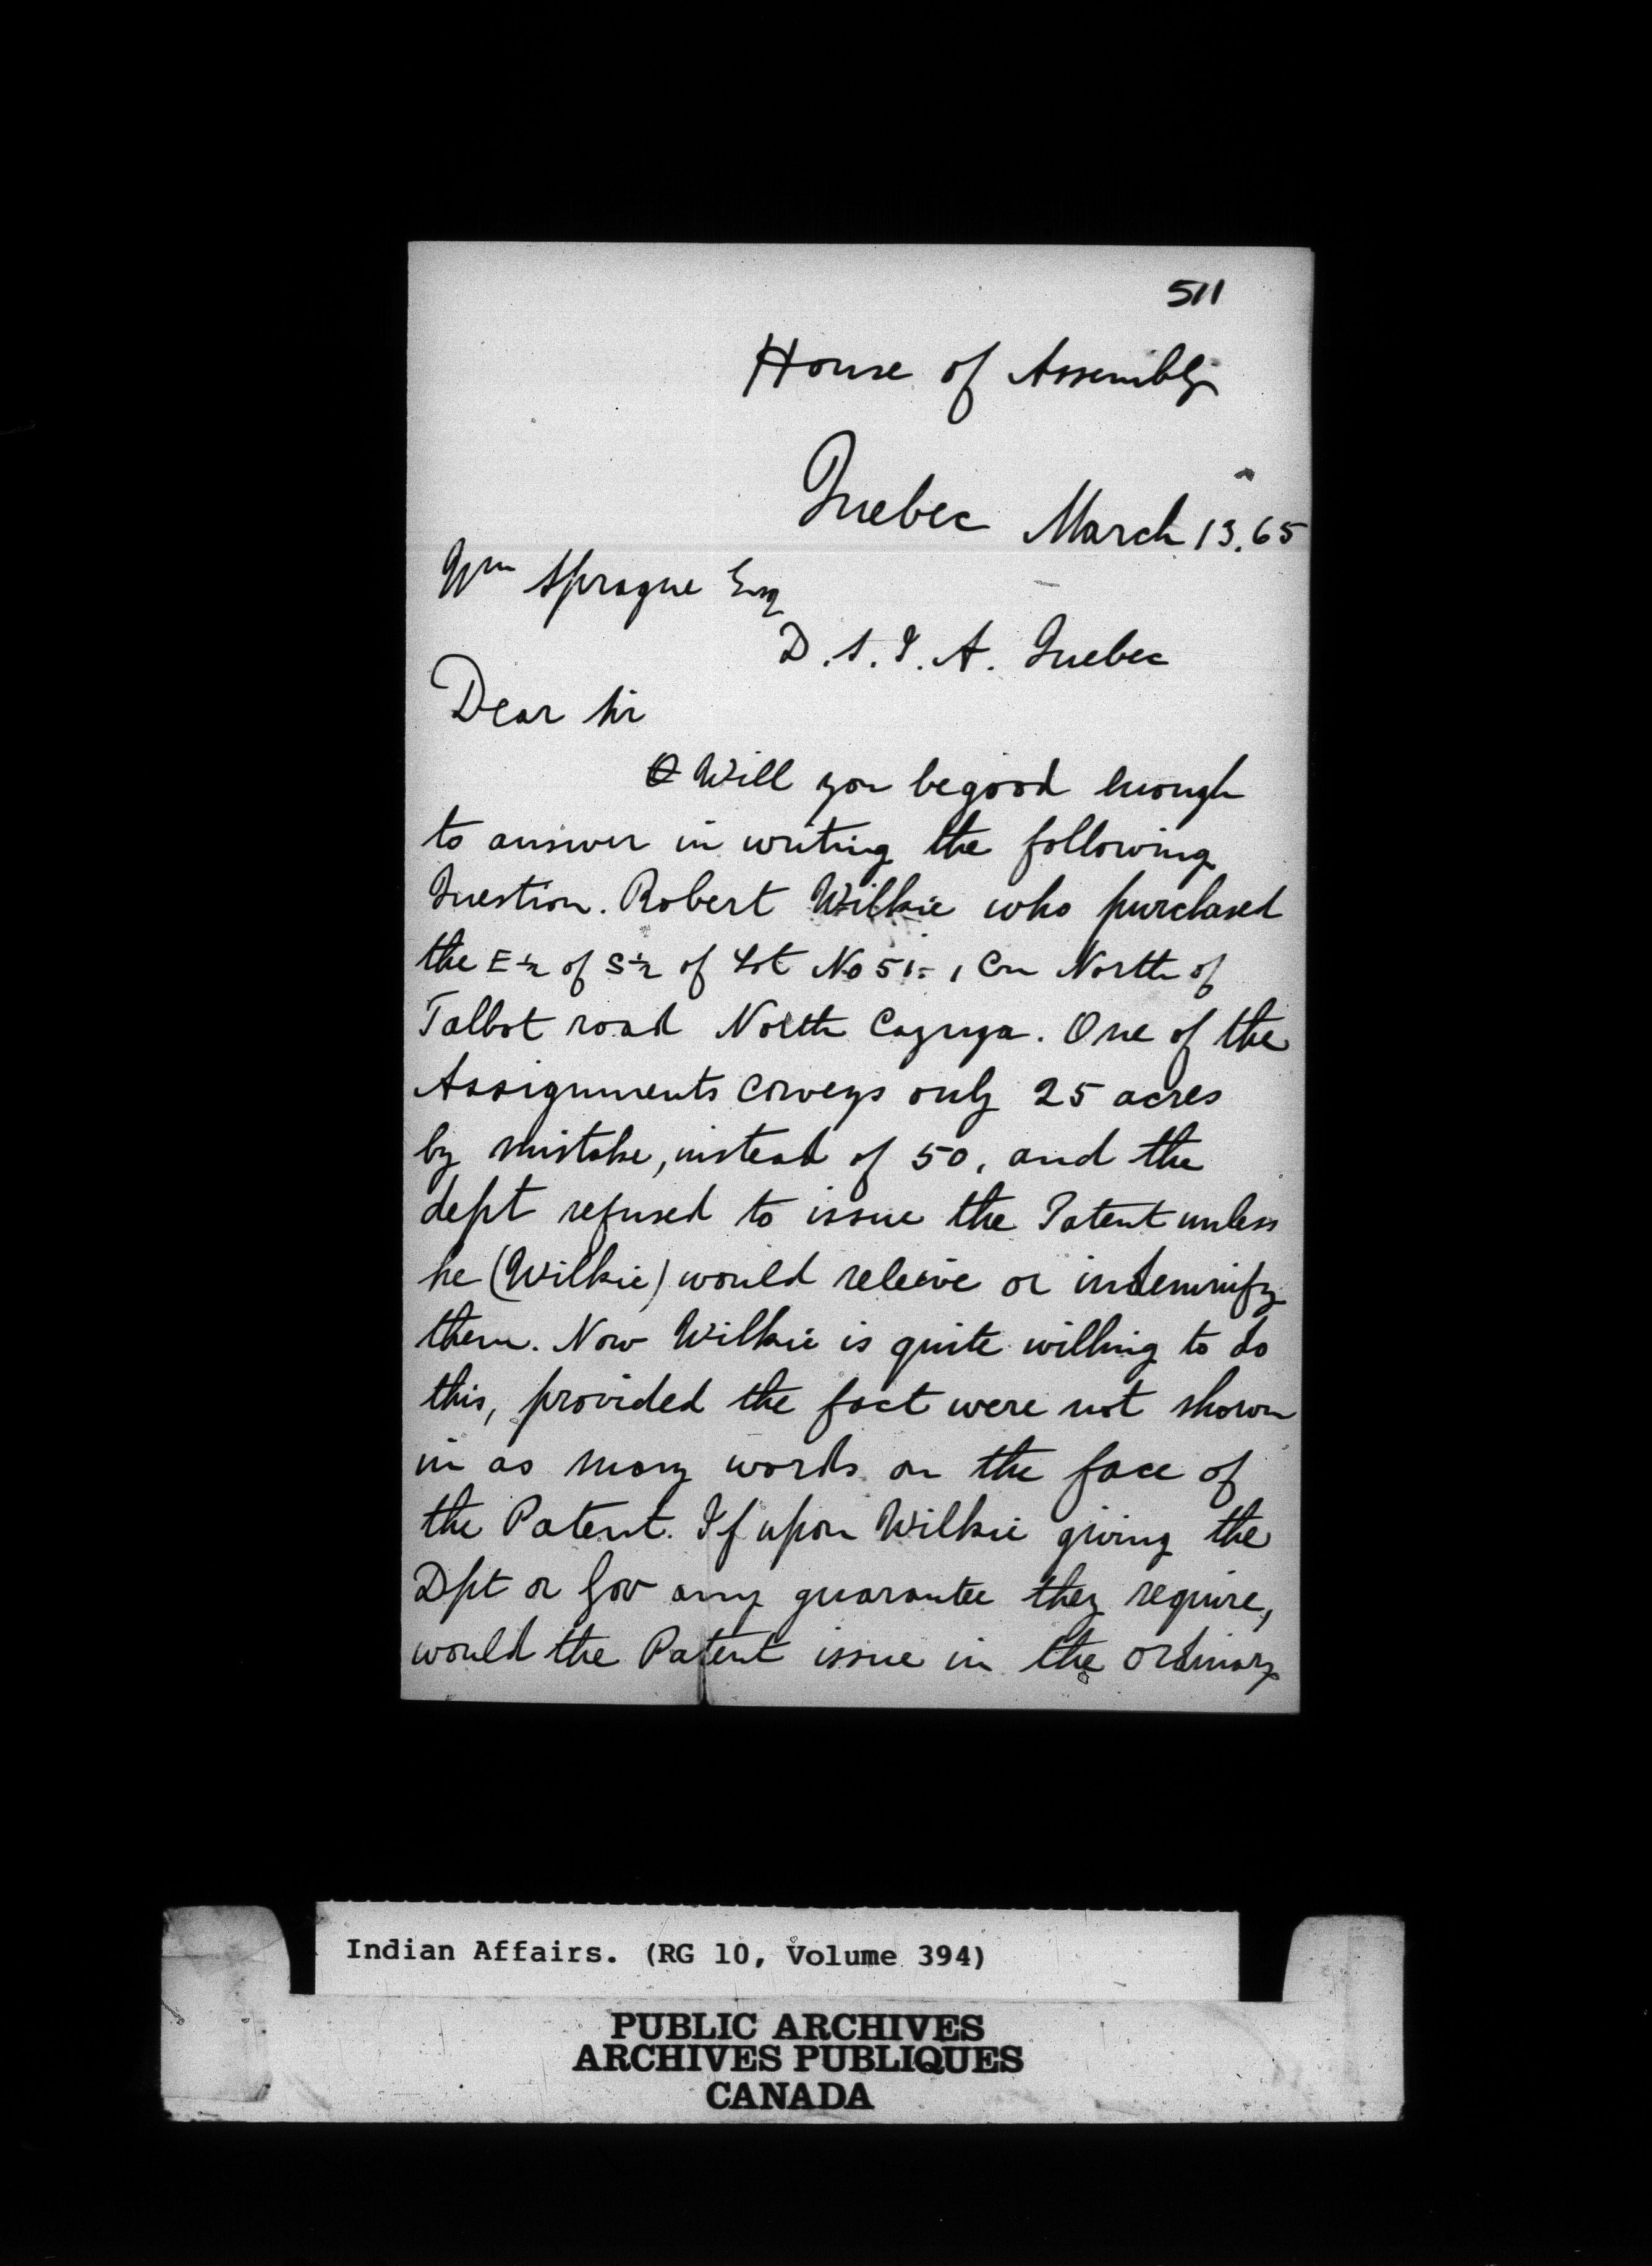 511
House of Assembly
Quebec March 13.65
Wm Sprague Esq
D.S.I.A. Quebec
Dear Sir
Will you be good enough
to answer in writing the following
Question. Robert Wilkie who purchased
the E½ of S½ of Lot No 51- 1 Con North of
Talbot road North Cayuga. One of the
Assignments conveys only 25 acres
by mistake, instead of 50, and the
dept refused to issue the Patent unless
he (Wilkie) would releive or indemnify
them. Now Wilkie is quite willing to do
this, provided the fact were not shown
in as many words on the face of
the Patent. If upon Wilkie giving the
Dpt or Gov any guarantee they require,
would the Patent issue in the ordinary
Indian Affairs. (RG 10, Volume 394)
PUBLIC ARCHIVES
ARCHIVES PUBLIQUES
CANADA